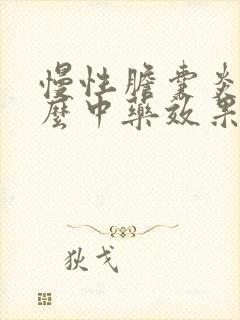 慢性膽囊炎
麼中藥效果
狄戈